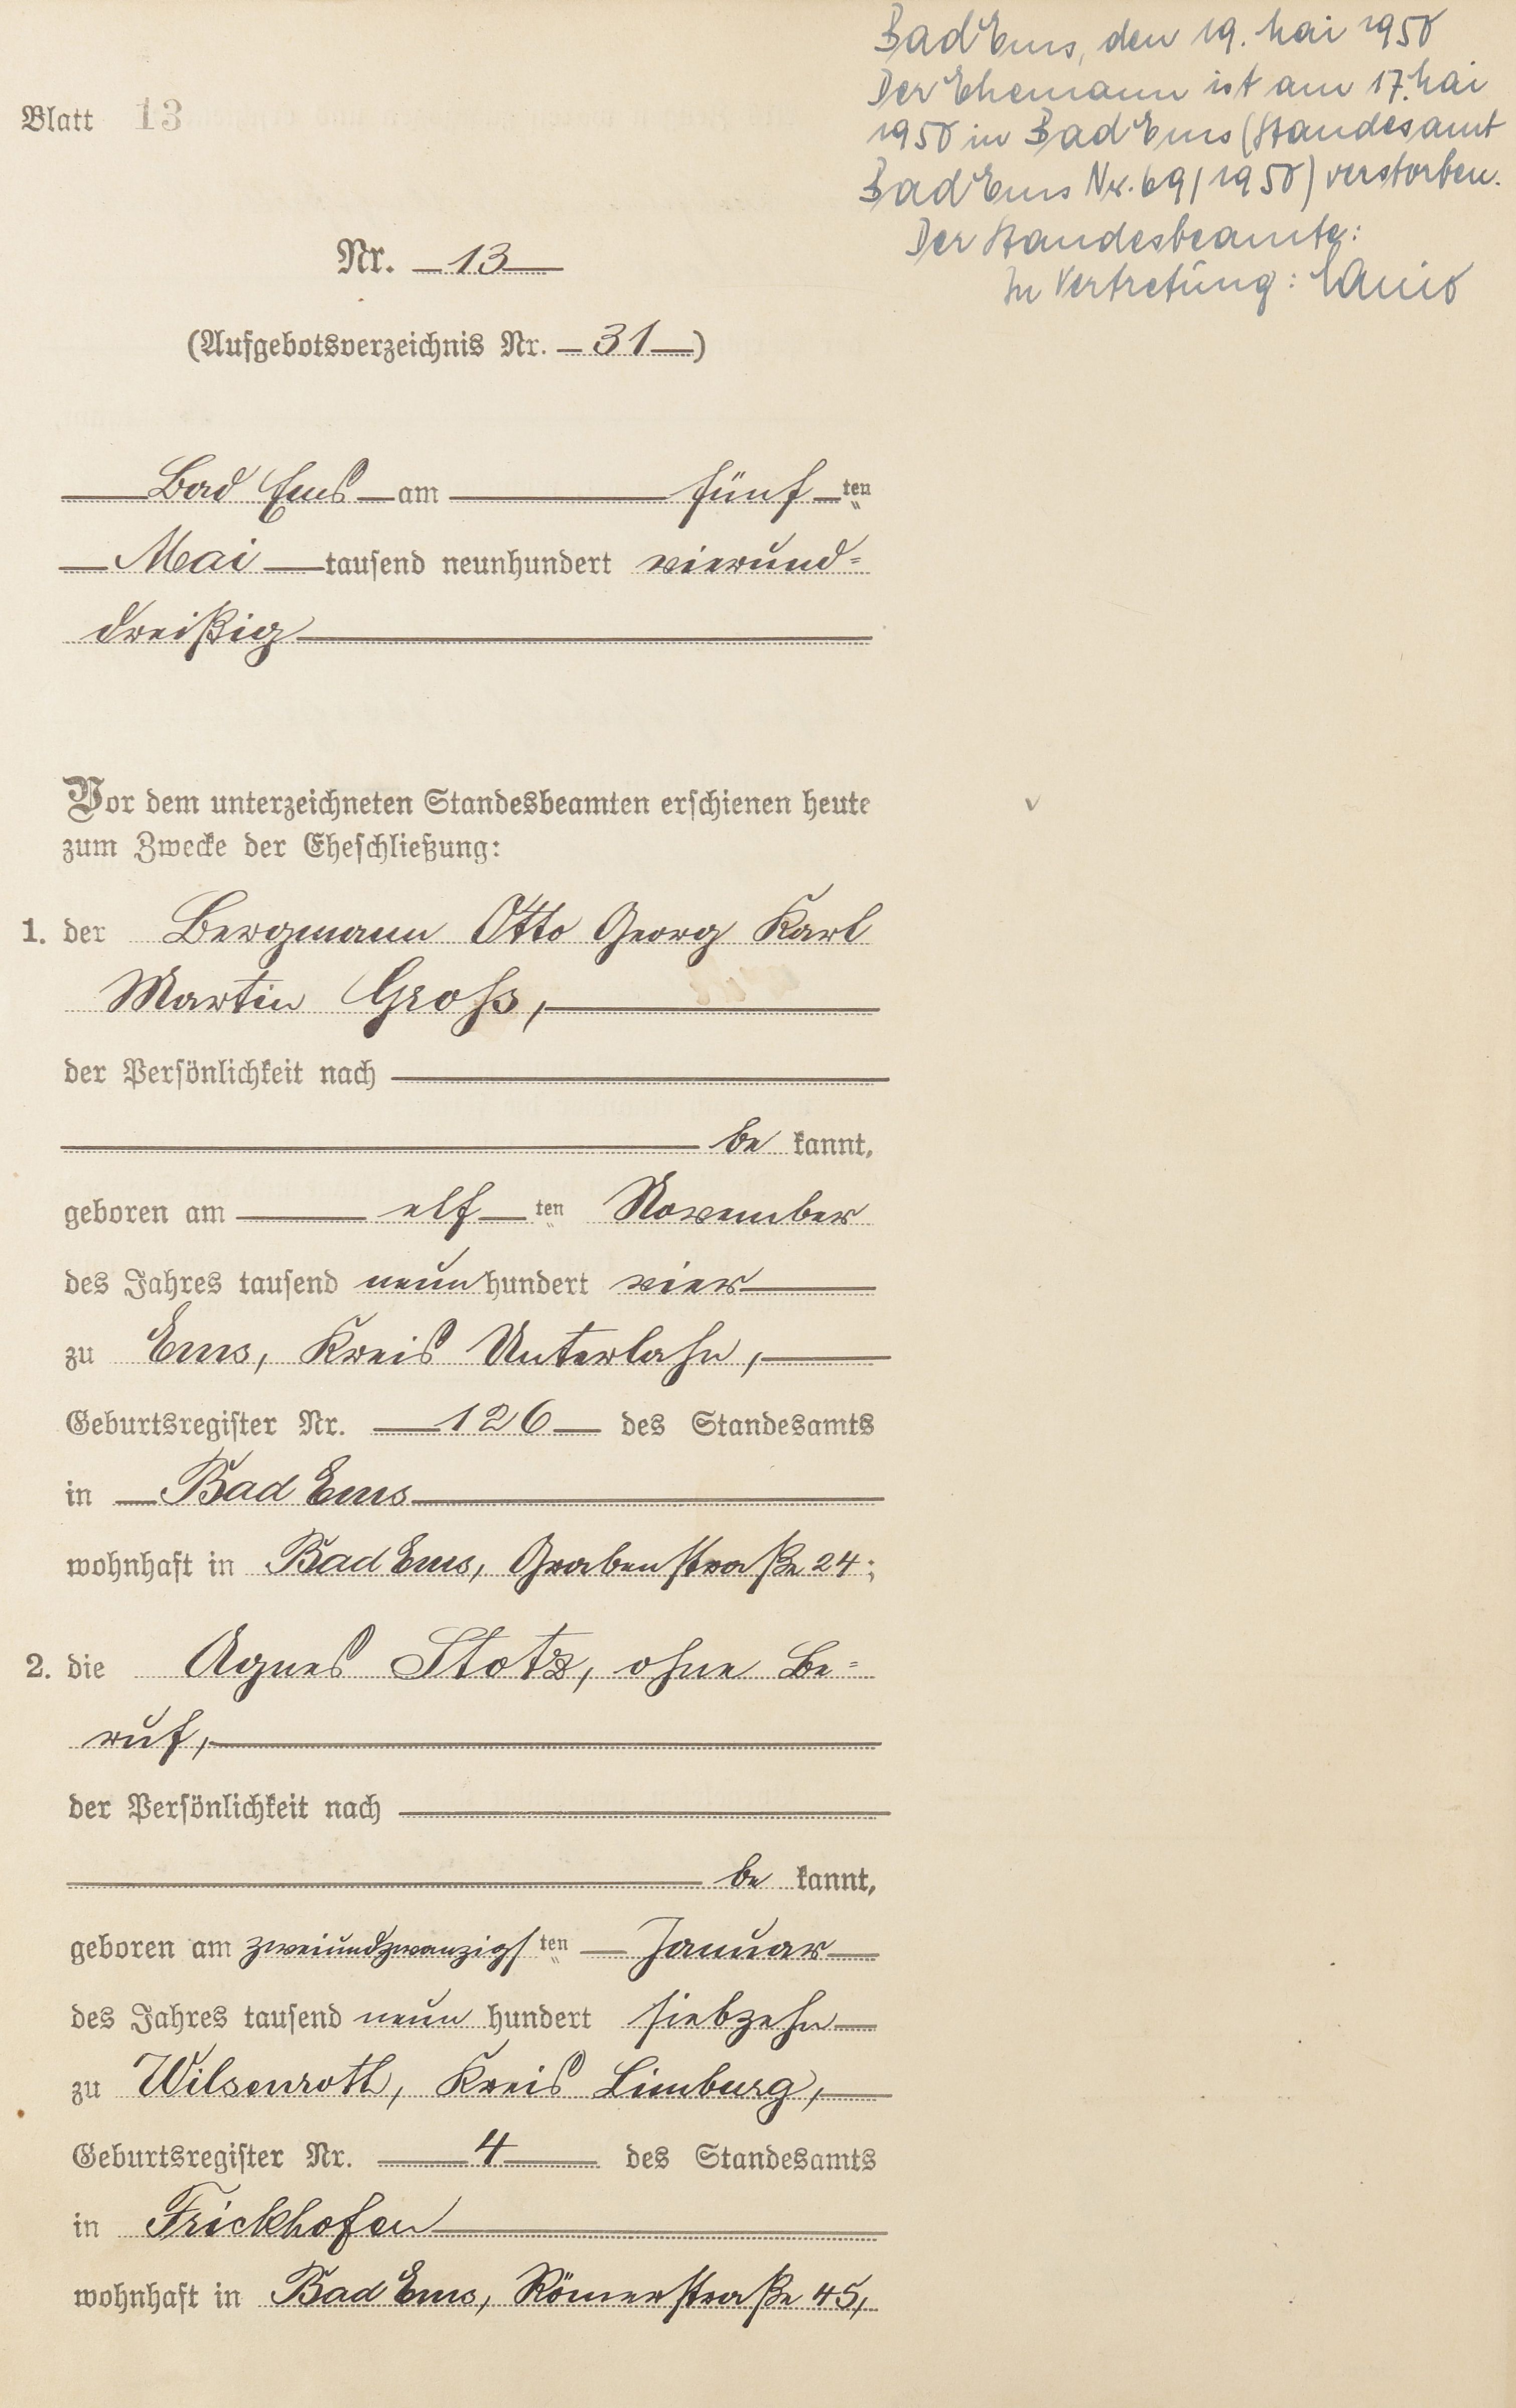 Bad Ems, den 19. Mai 1958
Der Ehemann ist am 17. Mai
1958 in Bad Ems (Standesamt
Bad Ems Nr. 69/1958) verstorben.
Der Standesbeamte:
In Vertretung:
Blatt 13
Nr. 13
(Aufgebotsverzeichnis Nr. 31)
Bad Ems am fünf ten
Mai tausend neunhundert vierund=
dreißig
Vor dem unterzeichneten Standesbeamten erschienen heute
zum Zwecke der Eheschließung:
1. der Bergmann Otto Georg Karl
Martin Groß,
der Persönlichkeit nach
be kannt,
geboren am elf ten November
des Jahres tausend neun hundert vier
zu Ems, Kreis Unterlahn,
Geburtsregister Nr. 126 des Standesamts
in Bad Ems
wohnhaft in Bad Ems, Grabenstraße 24;
2. die Agnes Stotz, ohne Be=
ruf,
der Persönlichkeit nach
be kannt,
geboren am zweiundzwanzigs ten Januar
des Jahres tausend neun hundert siebzehn
zu Wilsenroth, Kreis Limburg,
Geburtsregister Nr. 4 des Standesamts
in Frickhofen
wohnhaft in Bad Ems, Römerstraße 45,